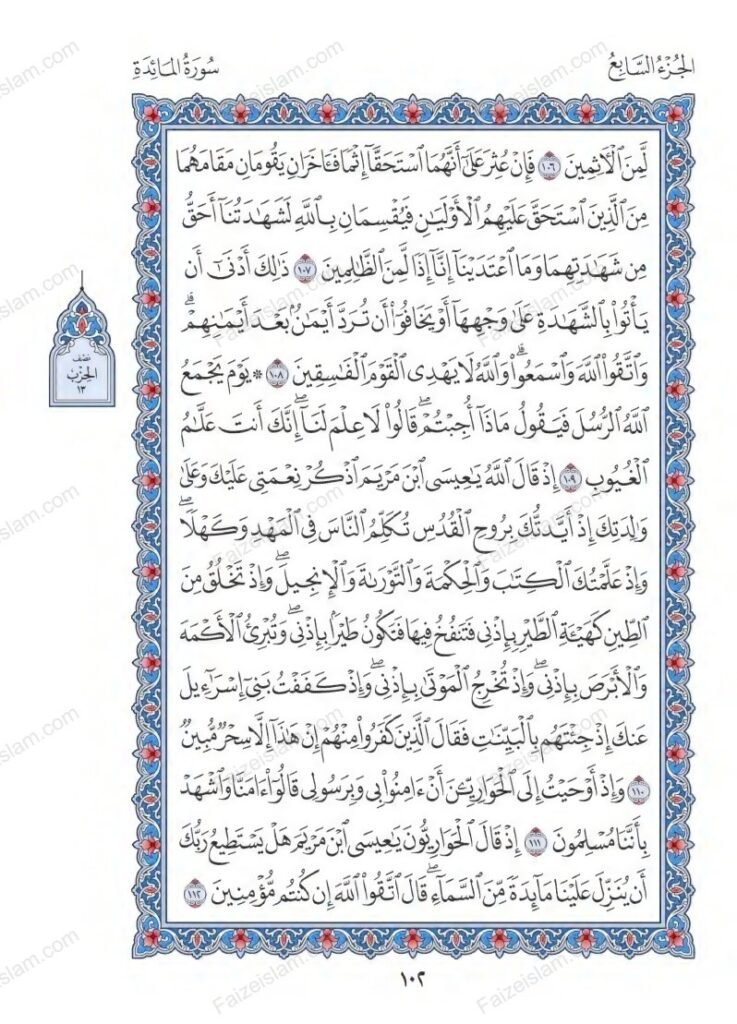 الجُزْءُ السَّابِعُ
سُورَةُ المَائِدَةِ
لَّمِنَ ٱلْأَثِمِينَ ١٠٦ فَإِنْ عُثِرَ عَلَىٰٓ أَنَّهُمَا ٱسْتَحَقَّآ إِثْمًا فَـَٔاخَرَانِ يَقُومَانِ مَقَامَهُمَا
مِنَ ٱلَّذِينَ ٱسْتَحَقَّ عَلَيْهِمُ ٱلْأَوْلَيَـٰنِ فَيُقْسِمَانِ بِٱللَّهِ لَشَهَـٰدَتُنَآ أَحَقُّ
مِن شَهَـٰدَتِهِمَا وَمَا ٱعْتَدَيْنَآ إِنَّآ إِذًا لَّمِنَ ٱلظَّـٰلِمِينَ ١٠٧ ذَٰلِكَ أَدْنَىٰٓ أَن
يَأْتُوا۟ بِٱلشَّهَـٰدَةِ عَلَىٰ وَجْهِهَآ أَوْ يَخَافُوٓا۟ أَن تُرَدَّ أَيْمَـٰنٌۢ بَعْدَ أَيْمَـٰنِهِمْ ۗ
وَٱتَّقُوا۟ ٱللَّهَ وَٱسْمَعُوا۟ ۗ وَٱللَّهُ لَا يَهْدِى ٱلْقَوْمَ ٱلْفَـٰسِقِينَ ١٠٨ * يَوْمَ يَجْمَعُ
ٱللَّهُ ٱلرُّسُلَ فَيَقُولُ مَاذَآ أُجِبْتُمْ ۖ قَالُوا۟ لَا عِلْمَ لَنَآ ۖ إِنَّكَ أَنتَ عَلَّـٰمُ
ٱلْغُيُوبِ ١٠٩ إِذْ قَالَ ٱللَّهُ يَـٰعِيسَى ٱبْنَ مَرْيَمَ ٱذْكُرْ نِعْمَتِى عَلَيْكَ وَعَلَىٰ
وَٰلِدَتِكَ إِذْ أَيَّدتُّكَ بِرُوحِ ٱلْقُدُسِ تُكَلِّمُ ٱلنَّاسَ فِى ٱلْمَهْدِ وَكَهْلًا ۖ
وَإِذْ عَلَّمْتُكَ ٱلْكِتَـٰبَ وَٱلْحِكْمَةَ وَٱلتَّوْرَىٰةَ وَٱلْإِنجِيلَ ۖ وَإِذْ تَخْلُقُ مِنَ
ٱلطِّينِ كَهَيْـَٔةِ ٱلطَّيْرِ بِإِذْنِى فَتَنفُخُ فِيهَا فَتَكُونُ طَيْرًۢا بِإِذْنِى ۖ وَتُبْرِئُ ٱلْأَكْمَهَ
وَٱلْأَبْرَصَ بِإِذْنِى ۖ وَإِذْ تُخْرِجُ ٱلْمَوْتَىٰ بِإِذْنِى ۖ وَإِذْ كَفَفْتُ بَنِىٓ إِسْرَٰٓءِيلَ
عَنكَ إِذْ جِئْتَهُم بِٱلْبَيِّنَـٰتِ فَقَالَ ٱلَّذِينَ كَفَرُوا۟ مِنْهُمْ إِنْ هَـٰذَآ إِلَّا سِحْرٌ مُّبِينٌ
١١٠ وَإِذْ أَوْحَيْتُ إِلَى ٱلْحَوَارِيِّـۧنَ أَنْ ءَامِنُوا۟ بِى وَبِرَسُولِى قَالُوٓا۟ ءَامَنَّا وَٱشْهَدْ
بِأَنَّنَا مُسْلِمُونَ ١١١ إِذْ قَالَ ٱلْحَوَارِيُّونَ يَـٰعِيسَى ٱبْنَ مَرْيَمَ هَلْ يَسْتَطِيعُ رَبُّكَ
أَن يُنَزِّلَ عَلَيْنَا مَآئِدَةً مِّنَ ٱلسَّمَآءِ ۖ قَالَ ٱتَّقُوا۟ ٱللَّهَ إِن كُنتُم مُّؤْمِنِينَ ١١٢
نصف
الحزب
١٣
١٠٢
Faizeislam.com